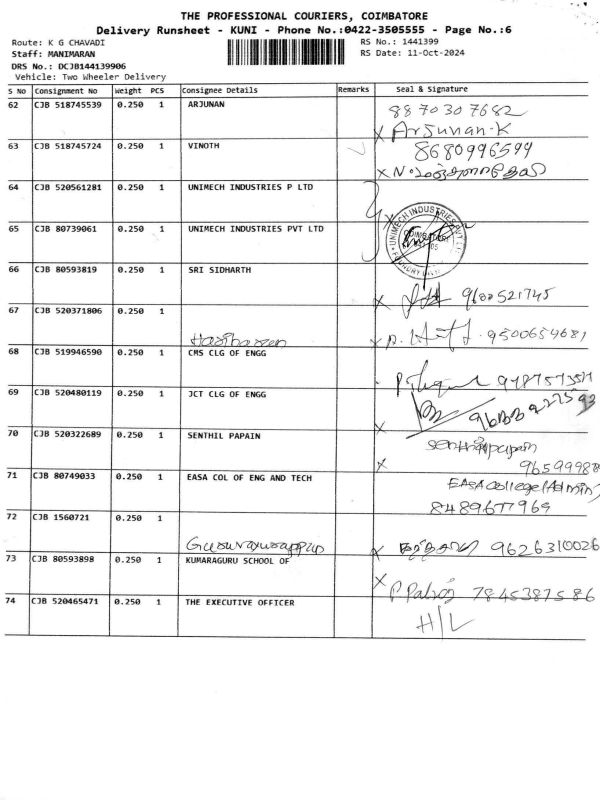 THE PROFESSIONAL COURIERS, COIMBATORE
Delivery Runsheet - KUNI - Phone No.:0422-3505555 - Page No.:6
Route: K G CHAVADI
RS No.: 1441399
Staff: MANIMARAN
RS Date: 11-Oct-2024
DRS No.: DCJB144139906
Vehicle: Two Wheeler Delivery
S No Consignment No Weight PCS Consignee Details Remarks Seal & Signature
62 CJB 518745539 0.250 1 ARJUNAN 8870307682
x Arjunan-K
63 CJB 518745724 0.250 1 VINOTH 8680996599
x
64 CJB 520561281 0.250 1 UNIMECH INDUSTRIES P LTD
65 CJB 80739061 0.250 1 UNIMECH INDUSTRIES PVT LTD x
UNIMECH INDUSTRIES PVT LTD
COIMBATORE
66 CJB 80593819 0.250 1 SRI SIDHARTH
x 9600521745
67 CJB 520371806 0.250 1
Hariharan x 9500654681
68 CJB 519946590 0.250 1 CMS CLG OF ENGG
69 CJB 520480119 0.250 1 JCT CLG OF ENGG
x
70 CJB 520322689 0.250 1 SENTHIL PAPAIN
x
71 CJB 80749033 0.250 1 EASA COL OF ENG AND TECH EASA College (Admin)
72 CJB 1560721 0.250 1
Guruvayurappan x 9626310026
73 CJB 80593898 0.250 1 KUMARAGURU SCHOOL OF
x 7845387586
74 CJB 520465471 0.250 1 THE EXECUTIVE OFFICER
H/L